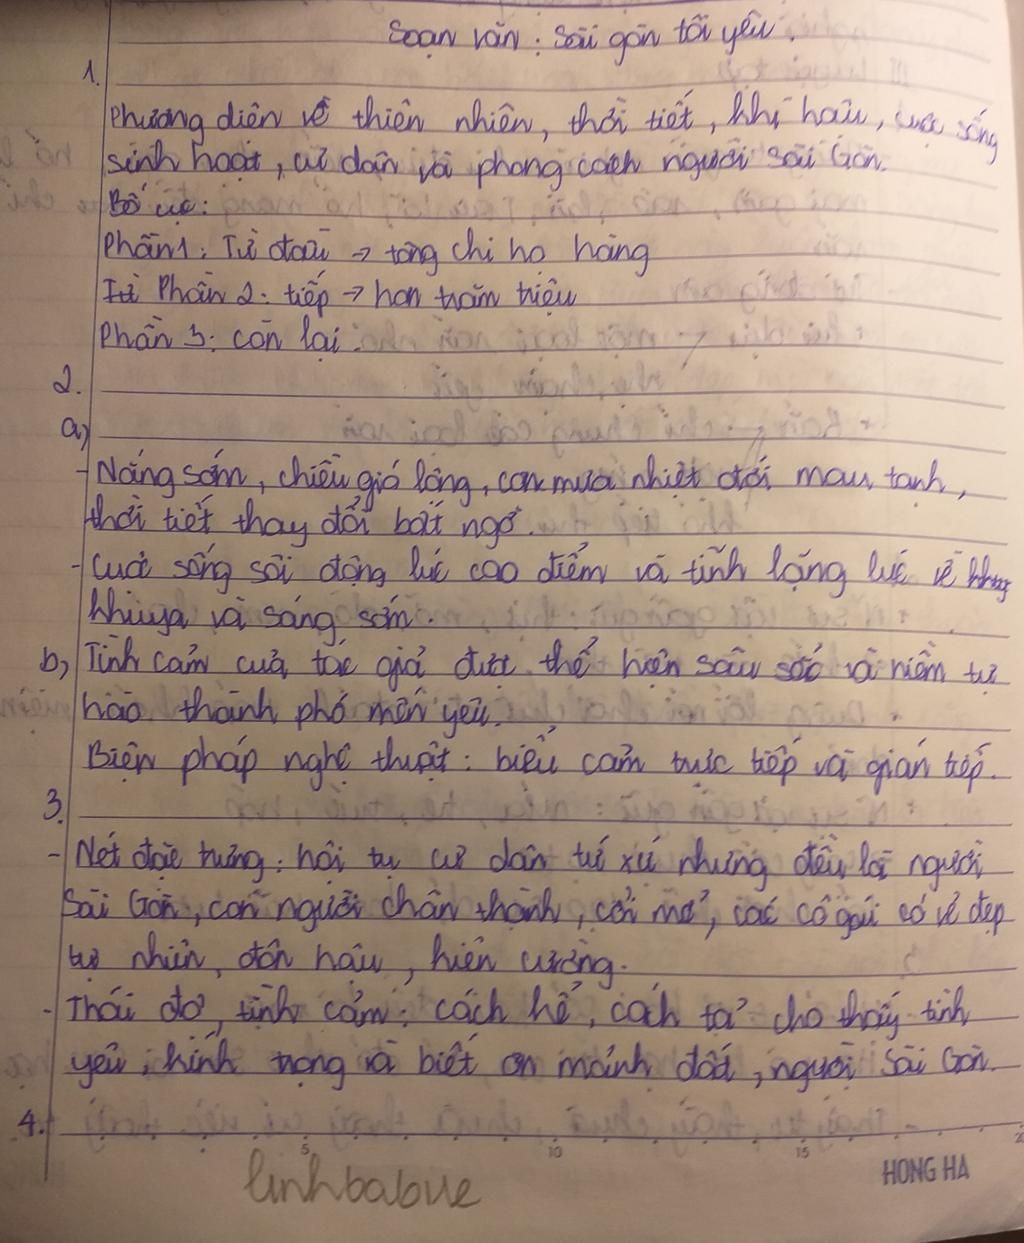 Soạn văn: Sài gòn tôi yêu.
1.
Phương diện về thiên nhiên, thời tiết, khí hậu, cuộc sống
sinh hoạt, cư dân và phong cách người Sài Gòn.
Bố cục:
Phần 1: Từ đầu → tông chi họ hàng
Phần 2: tiếp → hơn trăm triệu
Phần 3: còn lại.
2.
a)
- Nắng sớm, chiều gió lộng, cơn mưa nhiệt đới mau tạnh,
thời tiết thay đổi bất ngờ.
- Cuộc sống sôi động lúc cao điểm và tĩnh lặng lúc về
khuya và sáng sớm.
b) Tình cảm của tác giả được thể hiện sâu sắc và niềm tự
hào thành phố mến yêu.
Biện pháp nghệ thuật: biểu cảm trực tiếp và gián tiếp.
3.
- Nét đặc trưng: hội tụ cư dân tứ xứ nhưng đều là người
Sài Gòn, con người chân thành, cởi mở, các cô gái có vẻ đẹp
tự nhiên, đôn hậu, hiên cường.
- Thái độ, tình cảm: cách kể, cách tả cho thấy tình
yêu, kính trọng và biết ơn mảnh đất, người Sài Gòn.
4.
5 10 15
HONG HA
linhbabue